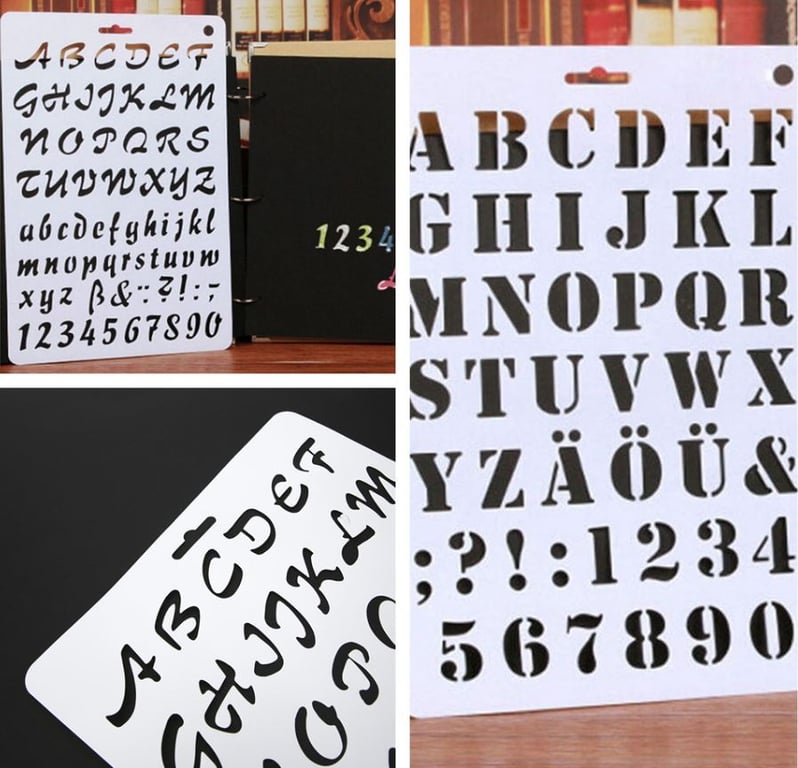 ABCDEF
GHIJKLM
NOPQRS
TUVWXYZ
abcdefghijkl
mnopqrstuvw
xyz ß&:?!:;
1234567890
1234
ABCDEF
GHIJKLM
OP
ABCDEF
GHIJKL
MNOPQR
STUVWX
YZÄÖÜ&
;?!:1234
567890